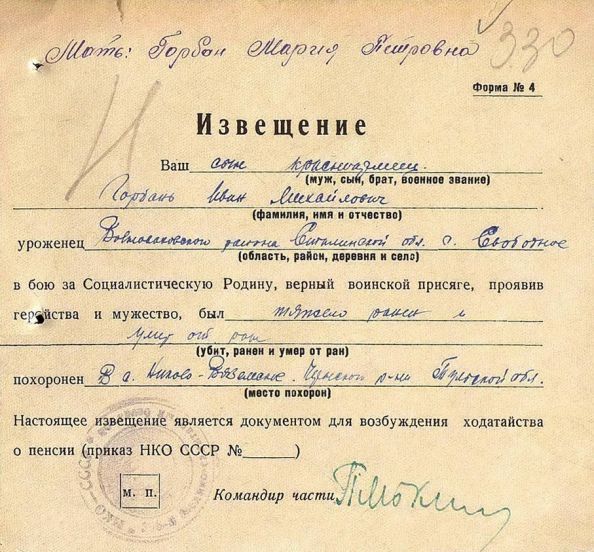 Мать: Горбан Мария Петровна
330
Форма № 4
Извещение
Ваш сын красноармеец
(муж, сын, брат, военное звание)
Горбань Иван Михайлович
(фамилия, имя и отчество)
уроженец района Сталинской обл. с. Свободное
(область, район, деревня и село)
в бою за Социалистическую Родину, верный воинской присяге, проявив
геройства и мужество, был тяжело ранен и
умер от ран
(убит, ранен и умер от ран)
похоронен В с. р-на Тульской обл.
(место похорон)
Настоящее извещение является документом для возбуждения ходатайства
о пенсии (приказ НКО СССР №______)
м. п.
Командир части